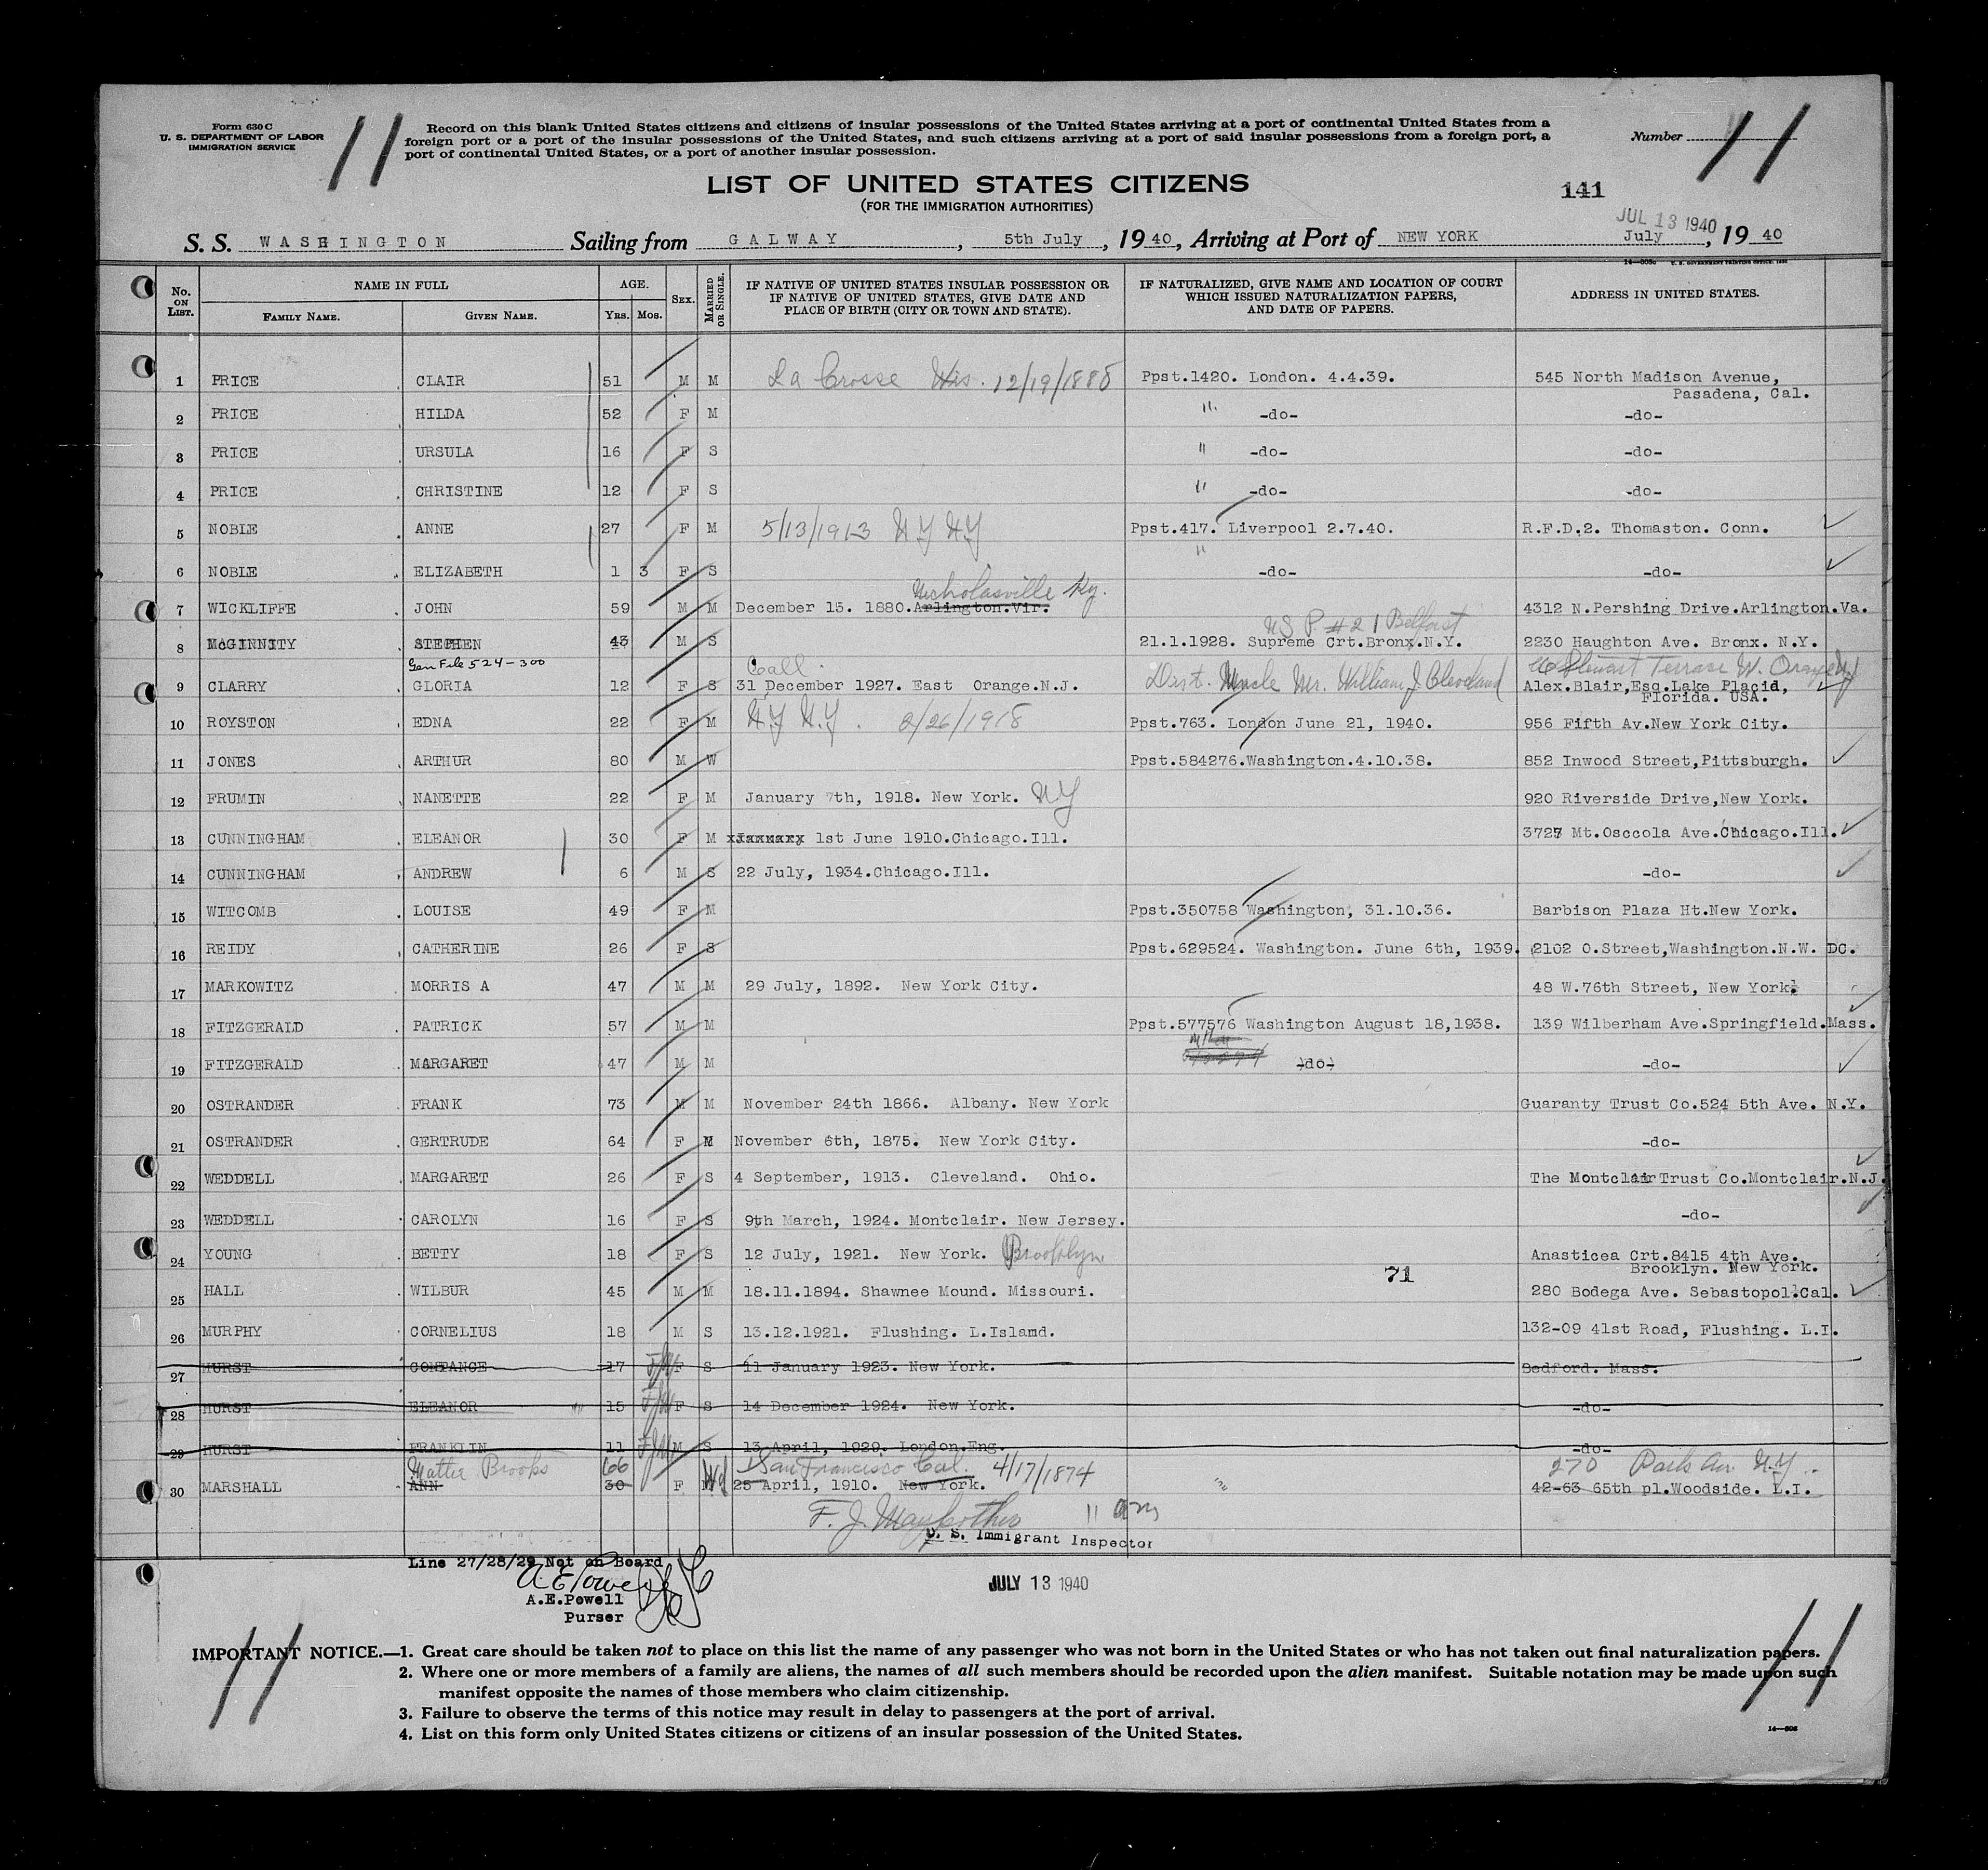 Form 630 C
U. S. DEPARTMENT OF LABOR
IMMIGRATION SERVICE
11
Record on this blank United States citizens and citizens of insular possessions of the United States arriving at a port of continental United States from a
foreign port or a port of the insular possessions of the United States, and such citizens arriving at a port of said insular possessions from a foreign port, a
port of continental United States, or a port of another insular possession.
Number 11
LIST OF UNITED STATES CITIZENS
(FOR THE IMMIGRATION AUTHORITIES)
141
JUL 13 1940
S. S. WASHINGTON Sailing from GALWAY, 5th July, 1940, Arriving at Port of NEW YORK July, 1940
14—505c U. S. GOVERNMENT PRINTING OFFICE: 1930
No. ON LIST. NAME IN FULL FAMILY NAME. GIVEN NAME. AGE. YRS. MOS. SEX. MARRIED OR SINGLE. IF NATIVE OF UNITED STATES INSULAR POSSESSION OR IF NATIVE OF UNITED STATES, GIVE DATE AND PLACE OF BIRTH (CITY OR TOWN AND STATE). IF NATURALIZED, GIVE NAME AND LOCATION OF COURT WHICH ISSUED NATURALIZATION PAPERS, AND DATE OF PAPERS. ADDRESS IN UNITED STATES.
1 PRICE CLAIR 51 M M La Crosse Wis. 12/19/1888 Ppst.1420. London. 4.4.39. 545 North Madison Avenue,
Pasadena, Cal.
2 PRICE HILDA 52 F M " -do- -do-
3 PRICE URSULA 16 F S " -do- -do-
4 PRICE CHRISTINE 12 F S " -do- -do-
5 NOBLE ANNE 27 F M 5/13/1913 N Y N Y Ppst.417. Liverpool 2.7.40. R.F.D.2. Thomaston. Conn.
6 NOBLE ELIZABETH 1 3 F S " -do- -do-
Nicholasville Ky.
7 WICKLIFFE JOHN 59 M M December 15. 1880.Arlington.Vir. 4312 N.Pershing Drive.Arlington.Va.
US P. #21 Belfast
8 McGINNITY STEPHEN 43 M S 21.1.1928. Supreme Crt.Bronx.N.Y. 2230 Haughton Ave. Bronx. N.Y.
Gen File 524-300
Stewart Terrace W. Orange NJ
9 CLARRY GLORIA 12 F S 31 December 1927. East Orange.N.J. Uncle Mr. William J. Cleveland Alex.Blair,Esq.Lake Placid,
Florida. USA.
10 ROYSTON EDNA 22 F M N Y N.Y. 2/26/1918 Ppst.763. London June 21, 1940. 956 Fifth Av.New York City.
11 JONES ARTHUR 80 M W Ppst.584276.Washington.4.10.38. 852 Inwood Street,Pittsburgh.
12 FRUMIN NANETTE 22 F M January 7th, 1918. New York. N.Y 920 Riverside Drive,New York.
13 CUNNINGHAM ELEANOR 30 F M xJanuaryx 1st June 1910.Chicago.Ill. 3727 Mt.Osccola Ave.Chicago.Ill.
14 CUNNINGHAM ANDREW 6 M S 22 July, 1934.Chicago.Ill. -do-
15 WITCOMB LOUISE 49 F M Ppst.350758 Washington, 31.10.36. Barbison Plaza Ht.New York.
16 REIDY CATHERINE 26 F S Ppst.629524. Washington. June 6th, 1939. 2102 O.Street,Washington.N.W. DC.
17 MARKOWITZ MORRIS A 47 M M 29 July, 1892. New York City. 48 W.76th Street, New York.
18 FITZGERALD PATRICK 57 M M Ppst.577576 Washington August 18,1938. 139 Wilberham Ave.Springfield.Mass.
19 FITZGERALD MARGARET 47 M M -do- -do-
20 OSTRANDER FRANK 73 M M November 24th 1866. Albany. New York Guaranty Trust Co.524 5th Ave. N.Y.
21 OSTRANDER GERTRUDE 64 F M November 6th, 1875. New York City. -do-
22 WEDDELL MARGARET 26 F S 4 September, 1913. Cleveland. Ohio. The Montclair Trust Co.Montclair.N.J.
23 WEDDELL CAROLYN 16 F S 9th March, 1924. Montclair. New Jersey. -do-
24 YOUNG BETTY 18 F S 12 July, 1921. New York. Brooklyn Anasticea Crt.8415 4th Ave.
Brooklyn. New York.
71
25 HALL WILBUR 45 M M 18.11.1894. Shawnee Mound. Missouri. 280 Bodega Ave. Sebastopol.Cal.
26 MURPHY CORNELIUS 18 M S 13.12.1921. Flushing. L.Island. 132-09 41st Road, Flushing. L.I.
27 HURST CONSTANCE 17 F S 11 January 1923. New York. Bedford. Mass.
28 HURST ELEANOR 15 F S 14 December 1924. New York. -do-
29 HURST FRANKLIN 11 M S 13 April, 1929. London.Eng. -do-
Mattie Brooks 66 Wd San Francisco Cal. 4/17/1874 270 Park Av. N.Y.
30 MARSHALL ANN 30 F M 25 April, 1910. New York. 42-63 65th pl.Woodside. L.I.
U. S. Immigrant Inspector
Line 27/28/29 Not on Board
A.E.Powell
Purser
JULY 13 1940
IMPORTANT NOTICE.—1. Great care should be taken not to place on this list the name of any passenger who was not born in the United States or who has not taken out final naturalization papers.
2. Where one or more members of a family are aliens, the names of all such members should be recorded upon the alien manifest. Suitable notation may be made upon such
manifest opposite the names of those members who claim citizenship.
3. Failure to observe the terms of this notice may result in delay to passengers at the port of arrival.
4. List on this form only United States citizens or citizens of an insular possession of the United States.
11
11